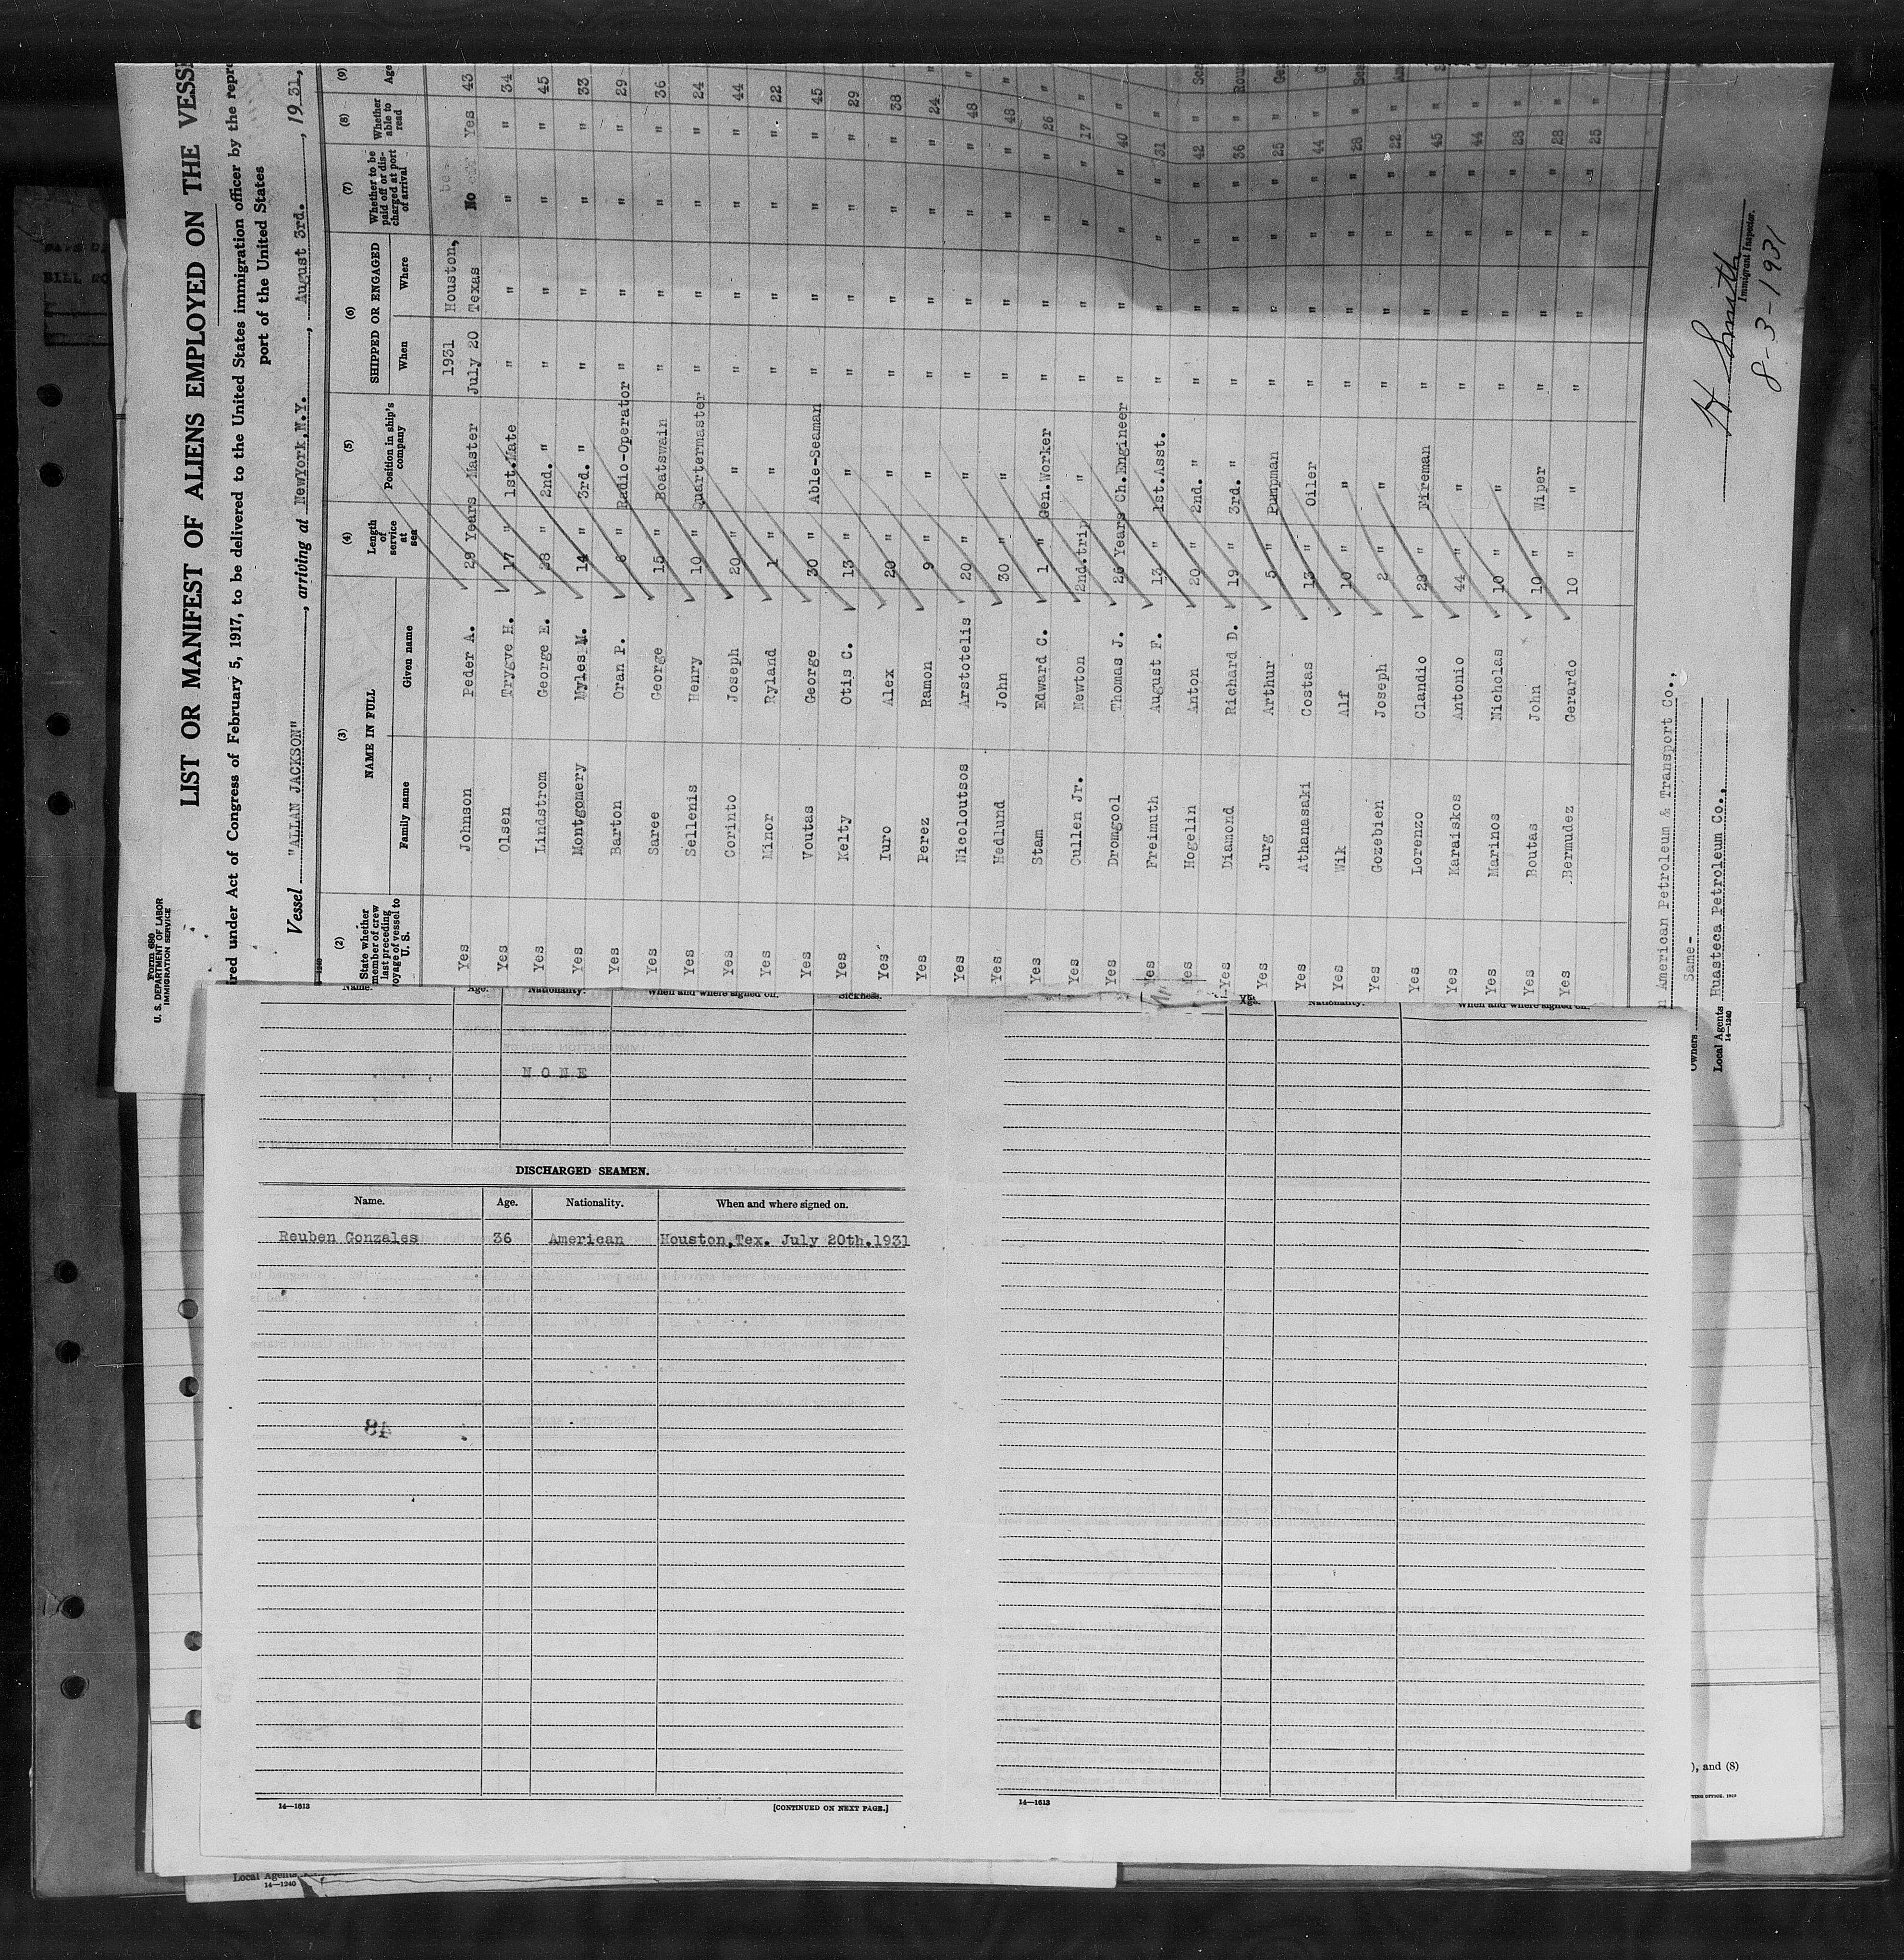 Form 680
U. S. DEPARTMENT OF LABOR
IMMIGRATION SERVICE
LIST OR MANIFEST OF ALIENS EMPLOYED ON THE VESSE
red under Act of Congress of February 5, 1917, to be delivered to the United States immigration officer by the repre
port of the United States
Vessel "ALLAN JACKSON", arriving at NewYork,N.Y., August 3rd., 1931,
(2) (3) (4) (5) (6) (7) (8) (9)
State whether member of crew last preceding voyage of vessel to U. S. NAME IN FULL Length of service at sea Position in ship's company SHIPPED OR ENGAGED Whether to be paid off or discharged at port of arrival Whether able to read Age
Family name Given name When Where
1931 Houston,
Yes Johnson Peder A. 29 Years Master July 20 Texas No Yes 43
Yes Olsen Trygve H. 17 " 1st.Mate " " " " 34
Yes Lindstrom George E. 28 " 2nd. " " " " " 45
Yes Montgomery Myles M. 14 " 3rd. " " " " " 33
Yes Barton Oran P. 6 " Radio-Operator " " " " 29
Yes Saree George 15 " Boatswain " " " " 36
Yes Sellenis Henry 10 " Quartermaster " " " " 24
Yes Corinto Joseph 20 " " " " " " 44
Yes Minor Ryland 1 " " " " " " 22
Yes Voutas George 30 " Able-Seaman " " " " 45
Yes Kelty Otis C. 13 " " " " " " 29
Yes Iuro Alex 20 " " " " " " 38
Yes Perez Ramon 9 " " " " " " 24
Yes Nicoloutsos Arstotelis 20 " " " " " " 48
Yes Hedlund John 30 " " " " " " 48
Yes Stam Edward C. 1 " Gen.Worker " " " " 26
Yes Cullen Jr. Newton 2nd.trip " " " " " 17
Yes Dromgool Thomas J. 26 Years Ch.Engineer " " " " 40
Yes Freimuth August F. 13 " 1st.Asst. " " " " 31
Yes Hogelin Anton 20 " 2nd. " " " " " 42
Yes Diamond Richard D. 19 " 3rd. " " " " " 36
Yes Jurg Arthur 5 " Pumpman " " " " 25
Yes Athanasaki Costas 13 " Oiler " " " " 44
Yes Wik Alf 10 " " " " " " 28
Yes Gozebien Joseph 2 " " " " " " 22
Yes Lorenzo Clandio 23 " Fireman " " " " 45
Yes Karaiskos Antonio 44 " " " " " " 44
Yes Marinos Nicholas 10 " " " " " " 28
Yes Boutas John 10 " Wiper " " " " 28
Yes Bermudez Gerardo 10 " " " " " " 25
American Petroleum & Transport Co.,
Owners Same-
Local Agents Huasteca Petroleum Co.,
14—1240
H Smith
Immigrant Inspector.
8-3-1931
Name. Age. Nationality. When and where signed on. Sickness.
NONE
DISCHARGED SEAMEN.
Name. Age. Nationality. When and where signed on.
Reuben Gonzales 36 American Houston,Tex. July 20th.1931
48
14—1613 [CONTINUED ON NEXT PAGE.]
Age. Nationality. When and where signed on.
14—1613
), and (8)
Local Agents
14—1240